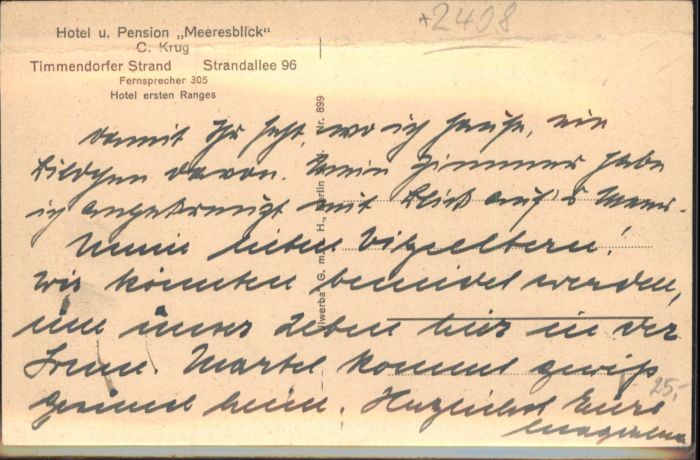 *2408
Hotel u. Pension „Meeresblick"
C. Krug
Timmendorfer Strand Strandallee 96
Fernsprecher 305
Hotel ersten Ranges
Damit Ihr seht, wo ich hause, ein
Bildchen davon. Mein Zimmer habe
ich angekreuzt mit Blick auf's Meer.
Meine lieben
Wir könnten beneidet werden,
um unser Leben hier in der
Sonne. Martel kommt gewiß
gesund heim. Herzlichst Eure
25,-